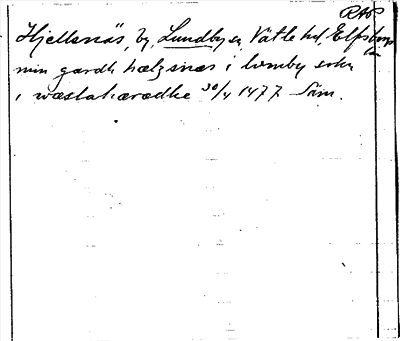 RAP
Hjellsnäs, by, Lundby sn, Vätle hd, Elfsborgs
län
min gardh hælgsnæs i lvmby sokn
i wæstahæradhe 30/4 1477 Säm.